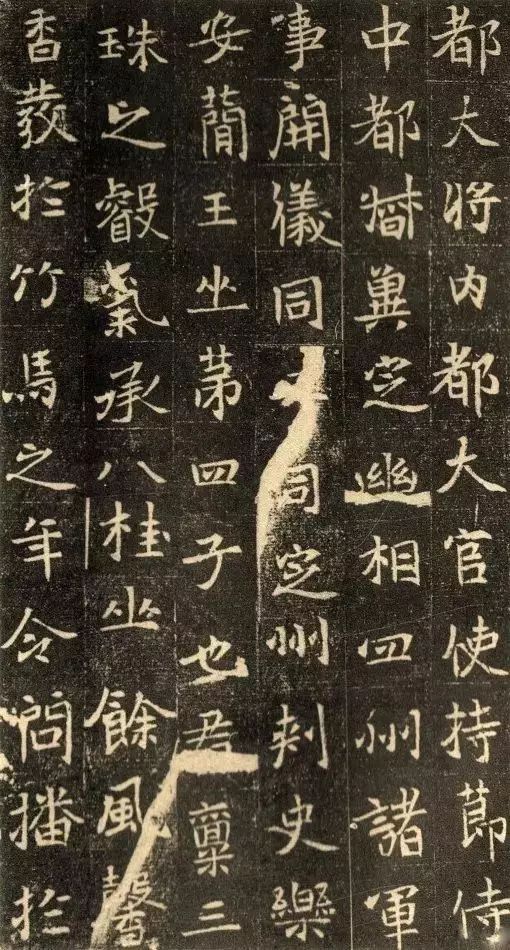 都大将内都大官使持節侍
中都督冀定幽相四州諸軍
事開儀同司定州刾史樂
安蕳王㞢苐四子也君稟三
珠之叡氣承八桂㞢餘風馨
香發於竹馬之年令問播於